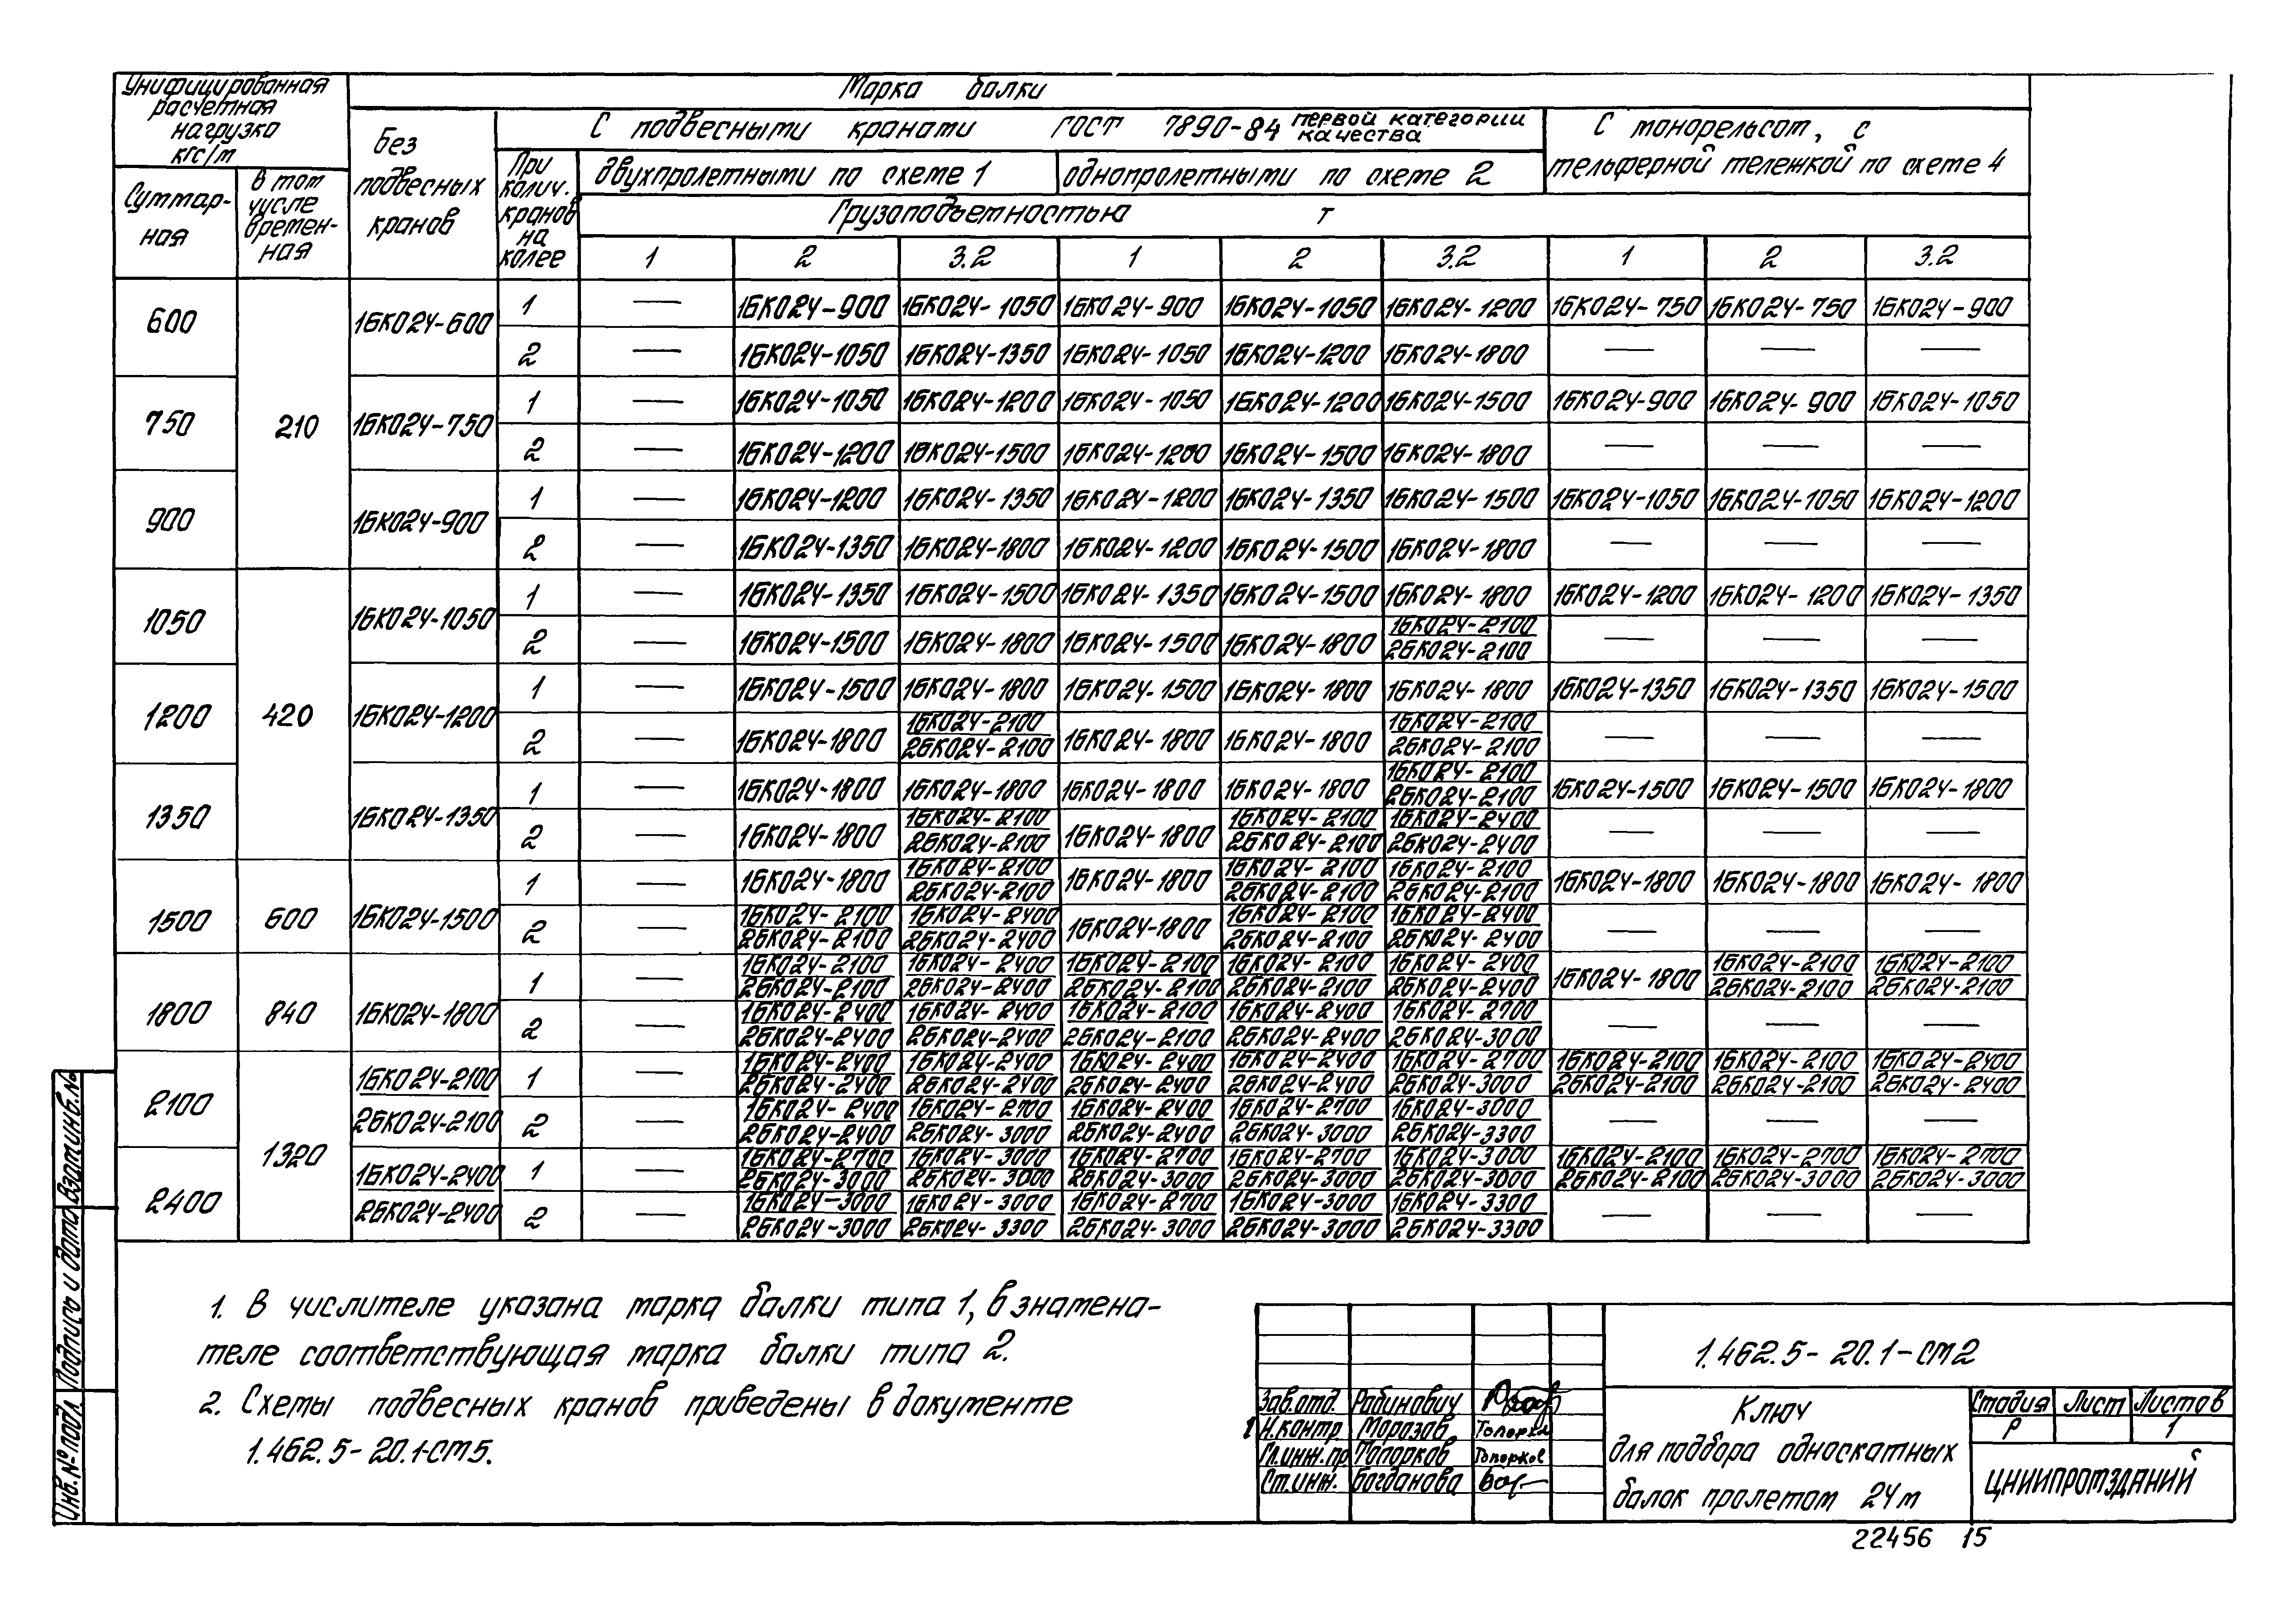 Унифицированная расчетная нагрузка кгс/м
Марка балки
Суммарная
в том числе временная
Без подвесных кранов
При колич. кранов на колее
С подвесными кранами ГОСТ 7890-84 первой категории качества
С монорельсом, с тельферной тележкой по схеме 4
двухпролетными по схеме 1
однопролетными по схеме 2
Грузоподъемностью т
1 2 3.2 1 2 3.2 1 2 3.2
600 210 1БК024-600 1 — 1БК024-900 1БК024-1050 1БК024-900 1БК024-1050 1БК024-1200 1БК024-750 1БК024-750 1БК024-900
2 — 1БК024-1050 1БК024-1350 1БК024-1050 1БК024-1200 1БК024-1800 — — —
750 1БК024-750 1 — 1БК024-1050 1БК024-1200 1БК024-1050 1БК024-1200 1БК024-1500 1БК024-900 1БК024-900 1БК024-1050
2 — 1БК024-1200 1БК024-1500 1БК024-1200 1БК024-1500 1БК024-1800 — — —
900 1БК024-900 1 — 1БК024-1200 1БК024-1350 1БК024-1200 1БК024-1350 1БК024-1500 1БК024-1050 1БК024-1050 1БК024-1200
2 — 1БК024-1350 1БК024-1800 1БК024-1200 1БК024-1500 1БК024-1800 — — —
1050 420 1БК024-1050 1 — 1БК024-1350 1БК024-1500 1БК024-1350 1БК024-1500 1БК024-1800 1БК024-1200 1БК024-1200 1БК024-1350
2 — 1БК024-1500 1БК024-1800 1БК024-1500 1БК024-1800 1БК024-2100/2БК024-2100 — — —
1200 1БК024-1200 1 — 1БК024-1500 1БК024-1800 1БК024-1500 1БК024-1800 1БК024-1800 1БК024-1350 1БК024-1350 1БК024-1500
2 — 1БК024-1800 1БК024-2100/2БК024-2100 1БК024-1800 1БК024-1800 1БК024-2100/2БК024-2100 — — —
1350 1БК024-1350 1 — 1БК024-1800 1БК024-1800 1БК024-1800 1БК024-1800 1БК024-2100/2БК024-2100 1БК024-1500 1БК024-1500 1БК024-1800
2 — 1БК024-1800 1БК024-2100/2БК024-2100 1БК024-1800 1БК024-2100/2БК024-2100 1БК024-2400/2БК024-2400 — — —
1500 600 1БК024-1500 1 — 1БК024-1800 1БК024-2100/2БК024-2100 1БК024-1800 1БК024-2100/2БК024-2100 1БК024-2100/2БК024-2100 1БК024-1800 1БК024-1800 1БК024-1800
2 — 1БК024-2100/2БК024-2100 1БК024-2400/2БК024-2400 1БК024-1800 1БК024-2100/2БК024-2100 1БК024-2400/2БК024-2400 — — —
1800 840 1БК024-1800 1 — 1БК024-2100/2БК024-2100 1БК024-2400/2БК024-2400 1БК024-2100/2БК024-2100 1БК024-2100/2БК024-2100 1БК024-2400/2БК024-2400 1БК024-1800 1БК024-2100/2БК024-2100 1БК024-2100/2БК024-2100
2 — 1БК024-2400/2БК024-2400 1БК024-2400/2БК024-2400 1БК024-2100/2БК024-2100 1БК024-2400/2БК024-2400 1БК024-2700/2БК024-3000 — — —
2100 1320 1БК024-2100/2БК024-2100 1 — 1БК024-2400/2БК024-2400 1БК024-2400/2БК024-2400 1БК024-2400/2БК024-2400 1БК024-2400/2БК024-2400 1БК024-2700/2БК024-3000 1БК024-2100/2БК024-2100 1БК024-2100/2БК024-2100 1БК024-2400/2БК024-2400
2 — 1БК024-2400/2БК024-2400 1БК024-2700/2БК024-3000 1БК024-2400/2БК024-2400 1БК024-2700/2БК024-3000 1БК024-3000/2БК024-3300 — — —
2400 1БК024-2400/2БК024-2400 1 — 1БК024-2700/2БК024-3000 1БК024-3000/2БК024-3000 1БК024-2700/2БК024-3000 1БК024-2700/2БК024-3000 1БК024-3000/2БК024-3000 1БК024-2100/2БК024-2100 1БК024-2700/2БК024-3000 1БК024-2700/2БК024-3000
2 — 1БК024-3000/2БК024-3000 1БК024-3000/2БК024-3300 1БК024-2700/2БК024-3000 1БК024-3000/2БК024-3000 1БК024-3300/2БК024-3300 — — —
1. В числителе указана марка балки типа 1, в знамена-
теле соответствующая марка балки типа 2.
2. Схемы подвесных кранов приведены в документе
1.462.5-20.1-СМ5.
Инв.№ подл. Подпись и дата Взам.инв.№
1.462.5-20.1-СМ2
Зав.отд. Рабинович
Н.контр. Морозов Топорко
Гл.инж.пр Топорков Топорков
Ст.инж. Богданова
Ключ
для подбора односкатных
балок пролетом 24м
Стадия Лист Листов
Р 1
ЦНИИПРОМЗДАНИЙ
22456 15